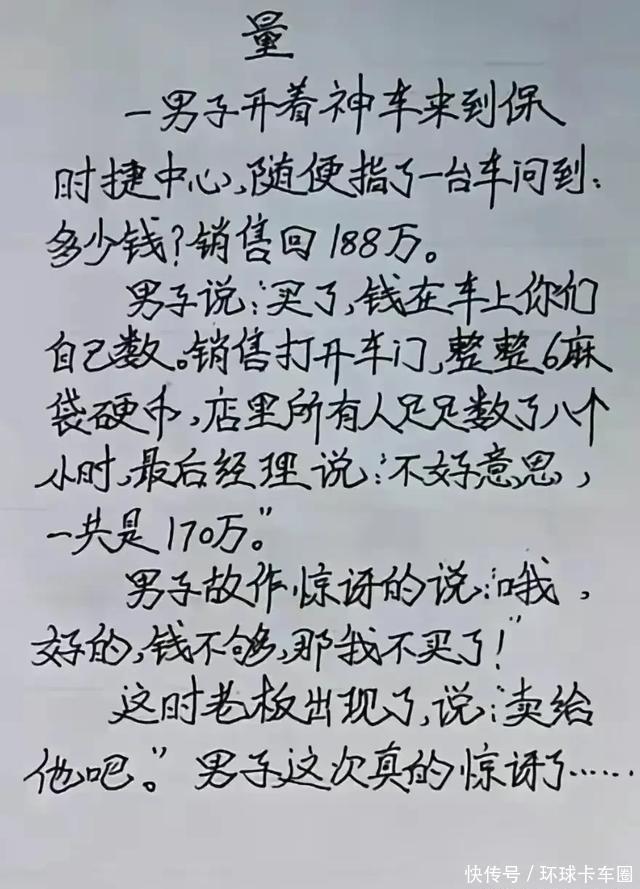 量
一男子开着神车来到保
时捷中心,随便指了一台车问到:
多少钱?销售回188万。
男子说:买了,钱在车上你们
自己数。销售打开车门,整整6麻
袋硬币,店里所有人足足数了八个
小时,最后经理说:不好意思,
一共是170万。"
男子故作惊讶的说:"哦,
好的,钱不够,那我不买了!"
这时老板出现了,说:"卖给
他吧。"男子这次真的惊讶了……
快传号/环球卡车圈